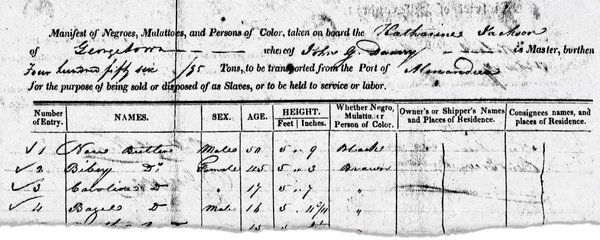 Manifest of Negroes, Mulattoes, and Persons of Color, taken on board the Katharine Jackson
of Georgetown — — — whereof John G is Master, burthen
Four hundred fifty six /95 Tons, to be transported from the Port of Alexandria
for the purpose of being sold or disposed of as Slaves, or to be held to service or labor.
Number of Entry. NAMES. SEX. AGE. HEIGHT. Feet Inches. Whether Negro, Mulatto, or Person of Color. Owner's or Shipper's Names and Places of Residence. Consignees names, and places of Residence.
1 Butler Male 50 5 9 Black
2 Bibey Do Female 45 5 3 Brown
3 Caroline D " 17 5 7 "
4 D Male 16 5 "